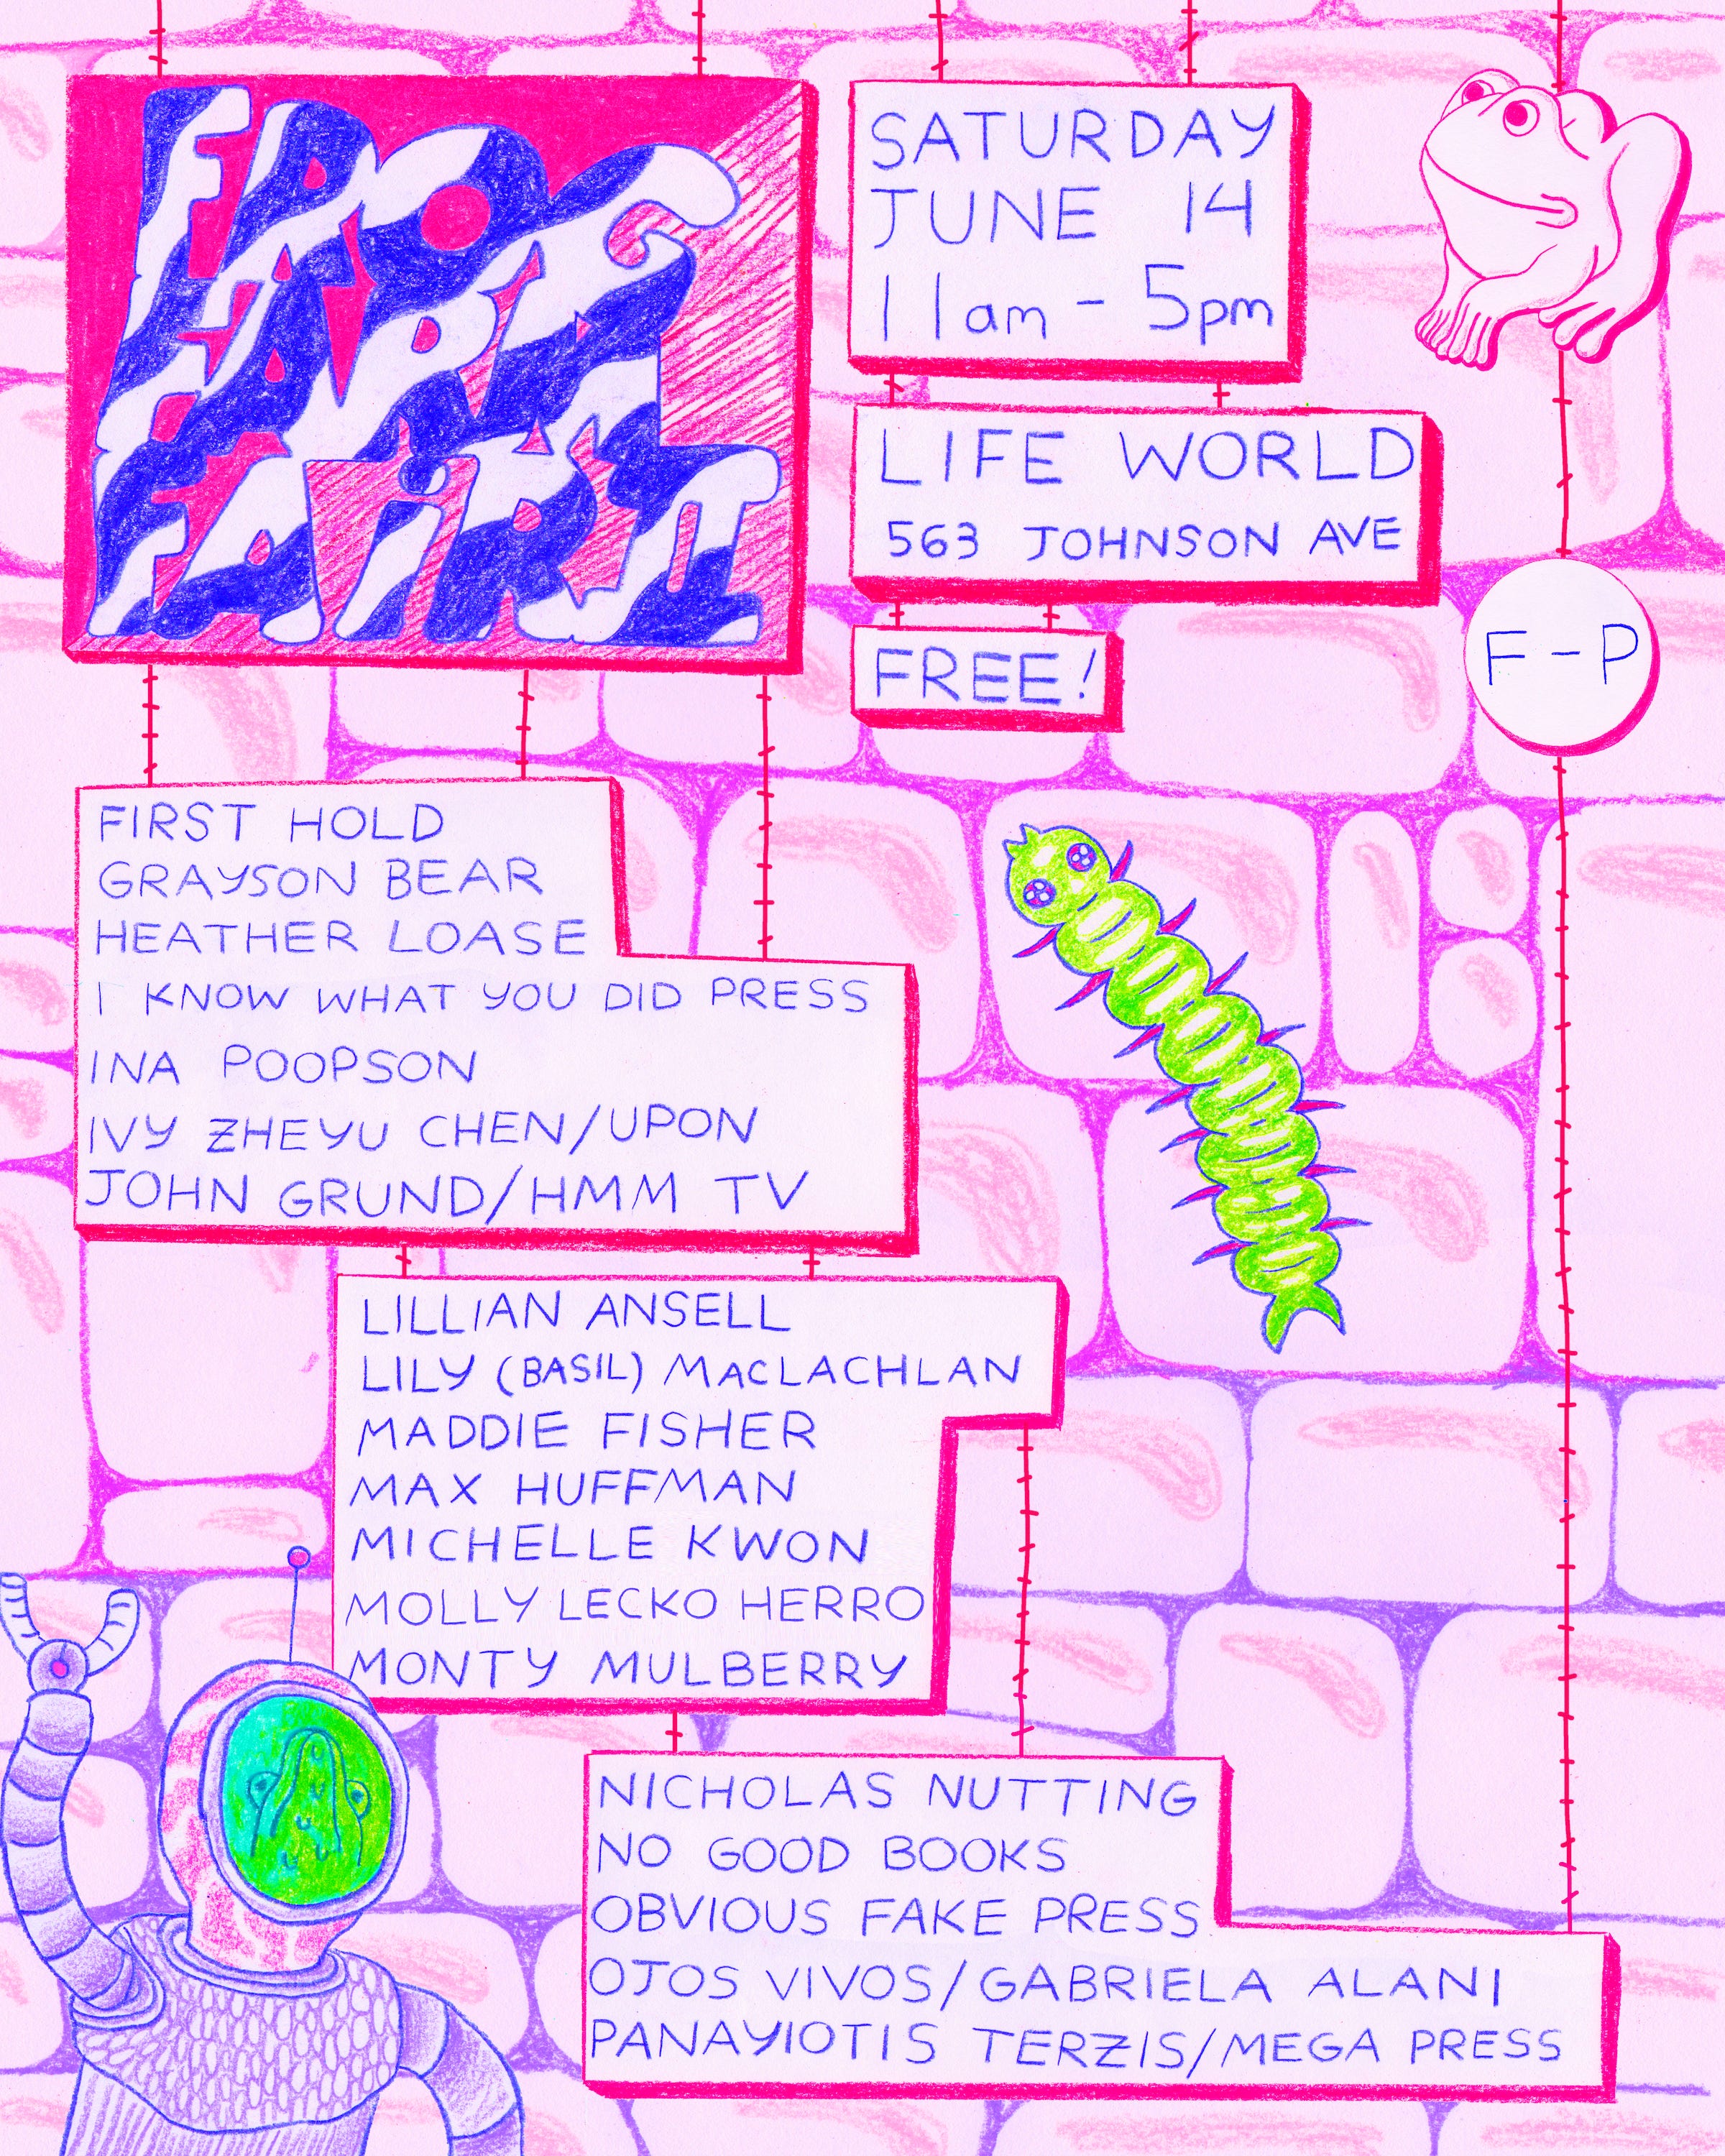 FROG
FARM
FAIR II
SATURDAY
JUNE 14
11am - 5pm
LIFE WORLD
563 JOHNSON AVE
FREE!
F-P
FIRST HOLD
GRAYSON BEAR
HEATHER LOASE
I KNOW WHAT YOU DID PRESS
INA POOPSON
IVY ZHEYU CHEN/UPON
JOHN GRUND/HMM TV
LILLIAN ANSELL
LILY (BASIL) MACLACHLAN
MADDIE FISHER
MAX HUFFMAN
MICHELLE KWON
MOLLY LECKO HERRO
MONTY MULBERRY
NICHOLAS NUTTING
NO GOOD BOOKS
OBVIOUS FAKE PRESS
OJOS VIVOS/GABRIELA ALANI
PANAYIOTIS TERZIS/MEGA PRESS